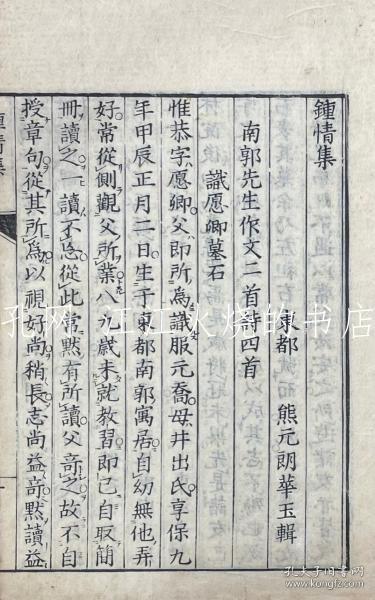 鍾情集
東都 熊元朗華玉輯
南郭先生作文二首詩四首
識愿卿墓石
惟恭字愿卿父即所為識服元喬母井出氏享保九
年甲辰正月二日生于東都南郭寓居自幼無他弄
好常從側觀父所業八九歲未就教習即已自取簡
冊讀之一讀不忘從此常默有所讀父奇之故不自
授章句從其所為以視好尚稍長志尚益奇默讀益
鍾情集
孔夫子旧书网